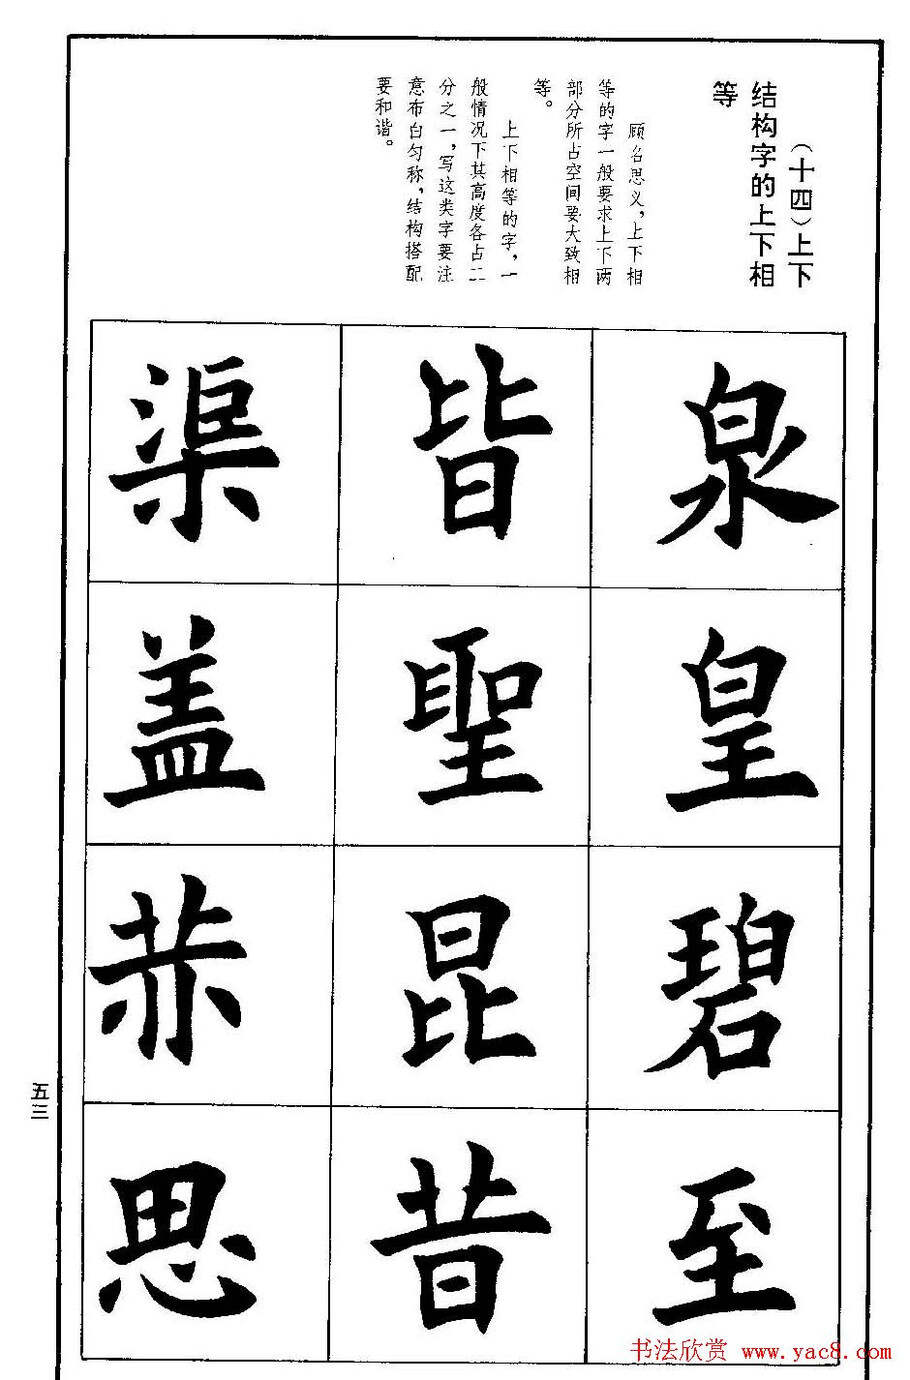 (十四)上下
结构字的上下相
等
顾名思义,上下相
等的字一般要求上下两
部分所占空间要大致相
等。
上下相等的字,一
般情况下其高度各占二
分之一,写这类字要注
意布白匀称,结构搭配
要和谐。
泉
皇
碧
至
皆
聖
昆
昔
渠
盖
恭
思
五三
书法欣赏 www.yac8.com